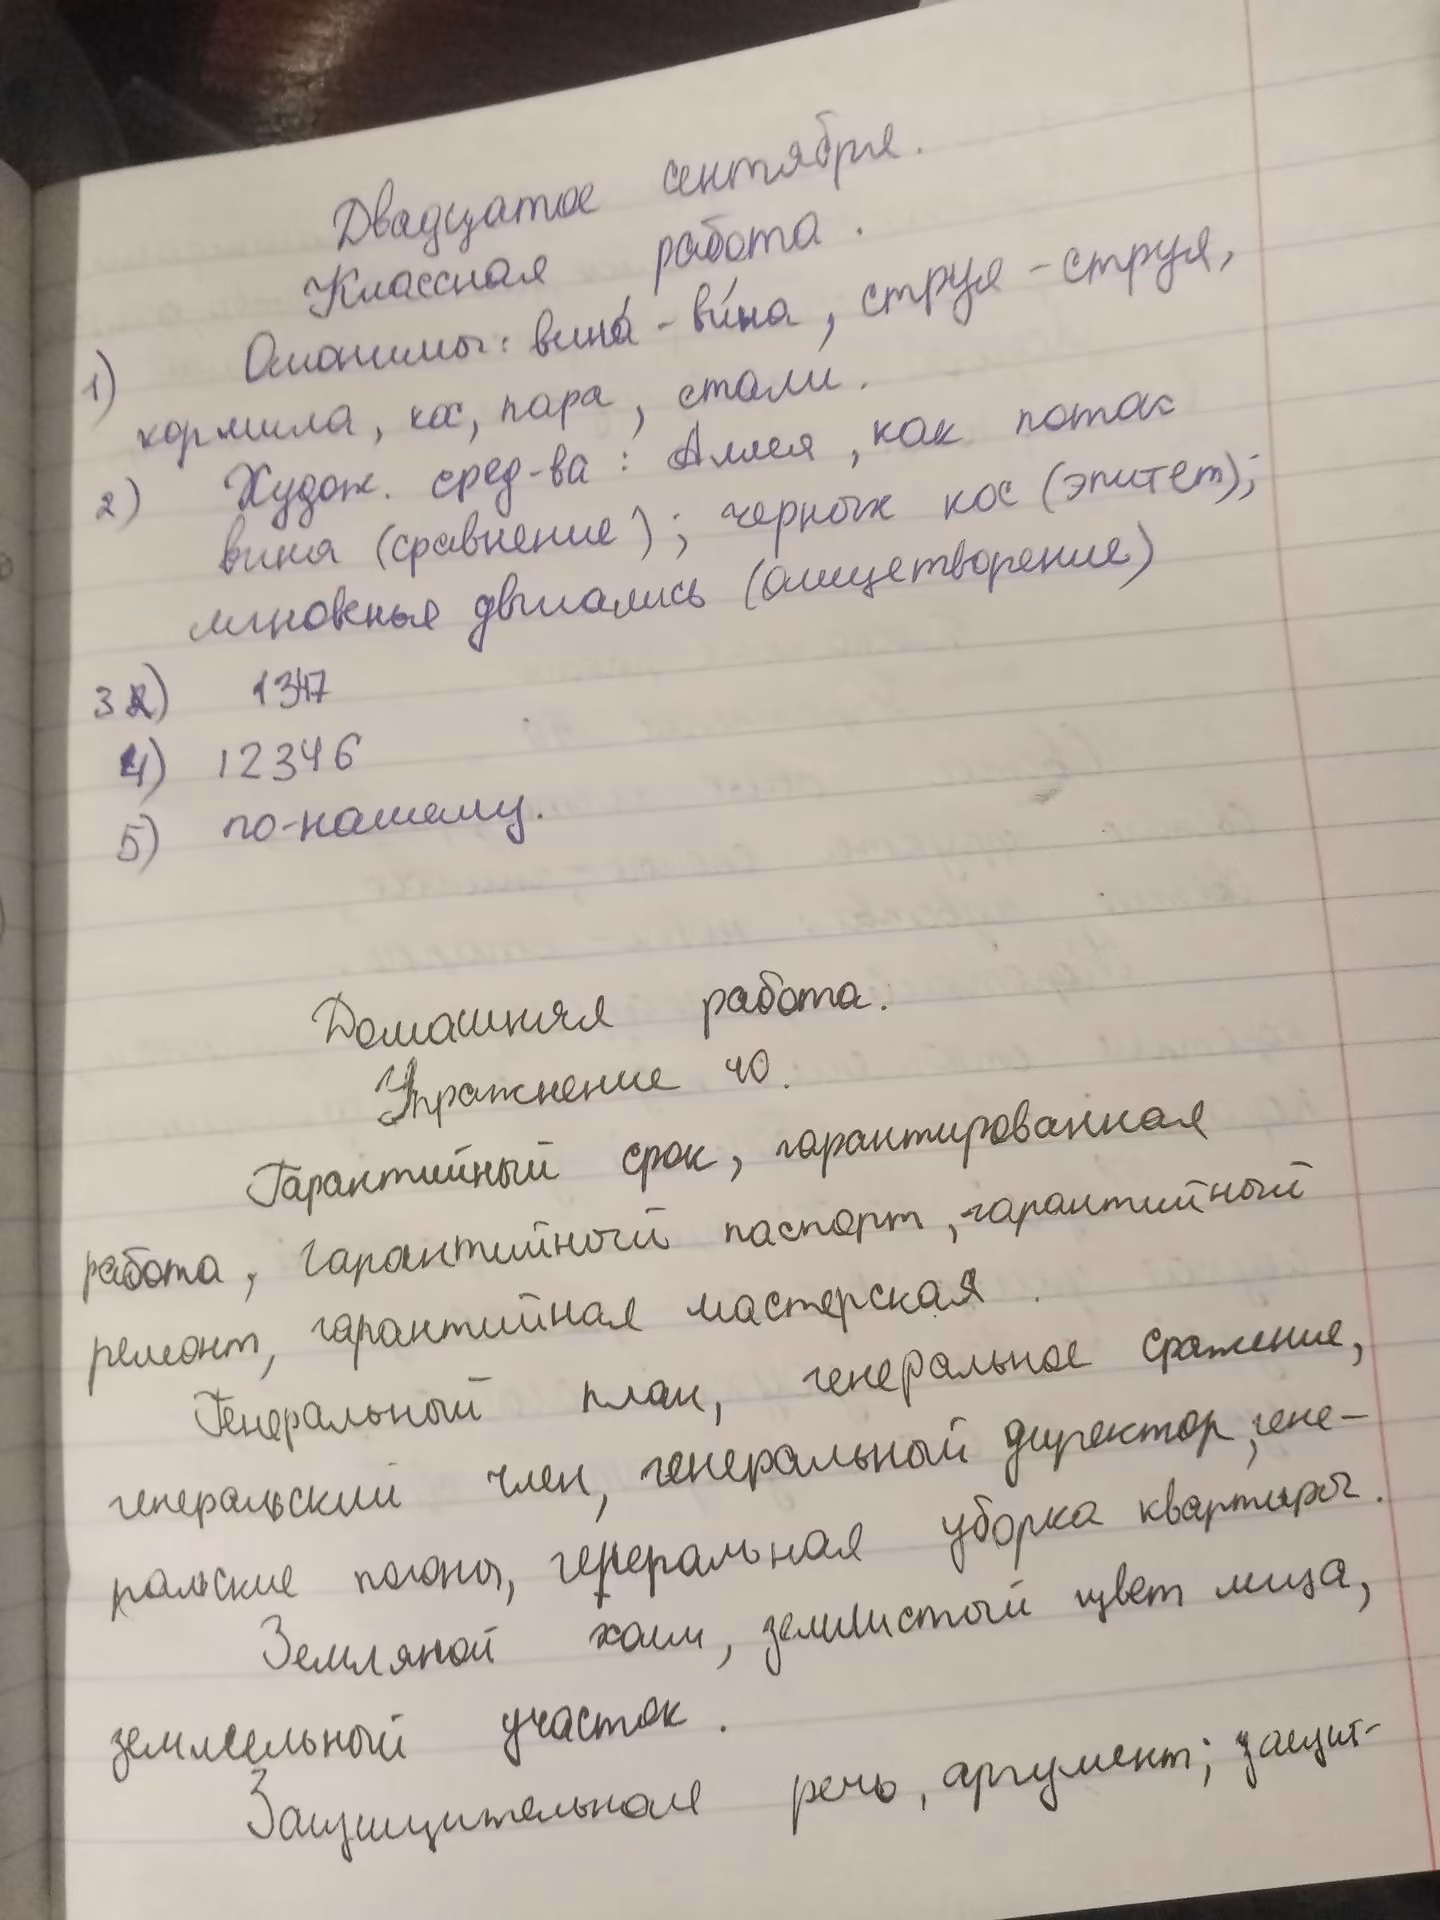 Двадцатое сентября.
Классная работа.
1) Омонимы: вина́ - ви́на, струя - струя,
кормила, кос, пара, стали.
2) Худож. сред-ва: Аллея, как поток
вина (сравнение); черных кос (эпитет);
мгновенья двигались (олицетворение)
3) 1347
4) 12346
5) по-нашему.
Домашняя работа.
Упражнение 40.
Гарантийный срок, гарантированная
работа, гарантийный паспорт, гарантийный
ремонт, гарантийная мастерская.
Генеральный план, генеральное сражение,
генеральский член, генеральный директор, гене-
ральские погоны, генеральная уборка квартиры.
Земляной холм, землистый цвет лица,
земельный участок.
Защитительная речь, аргумент; защит-